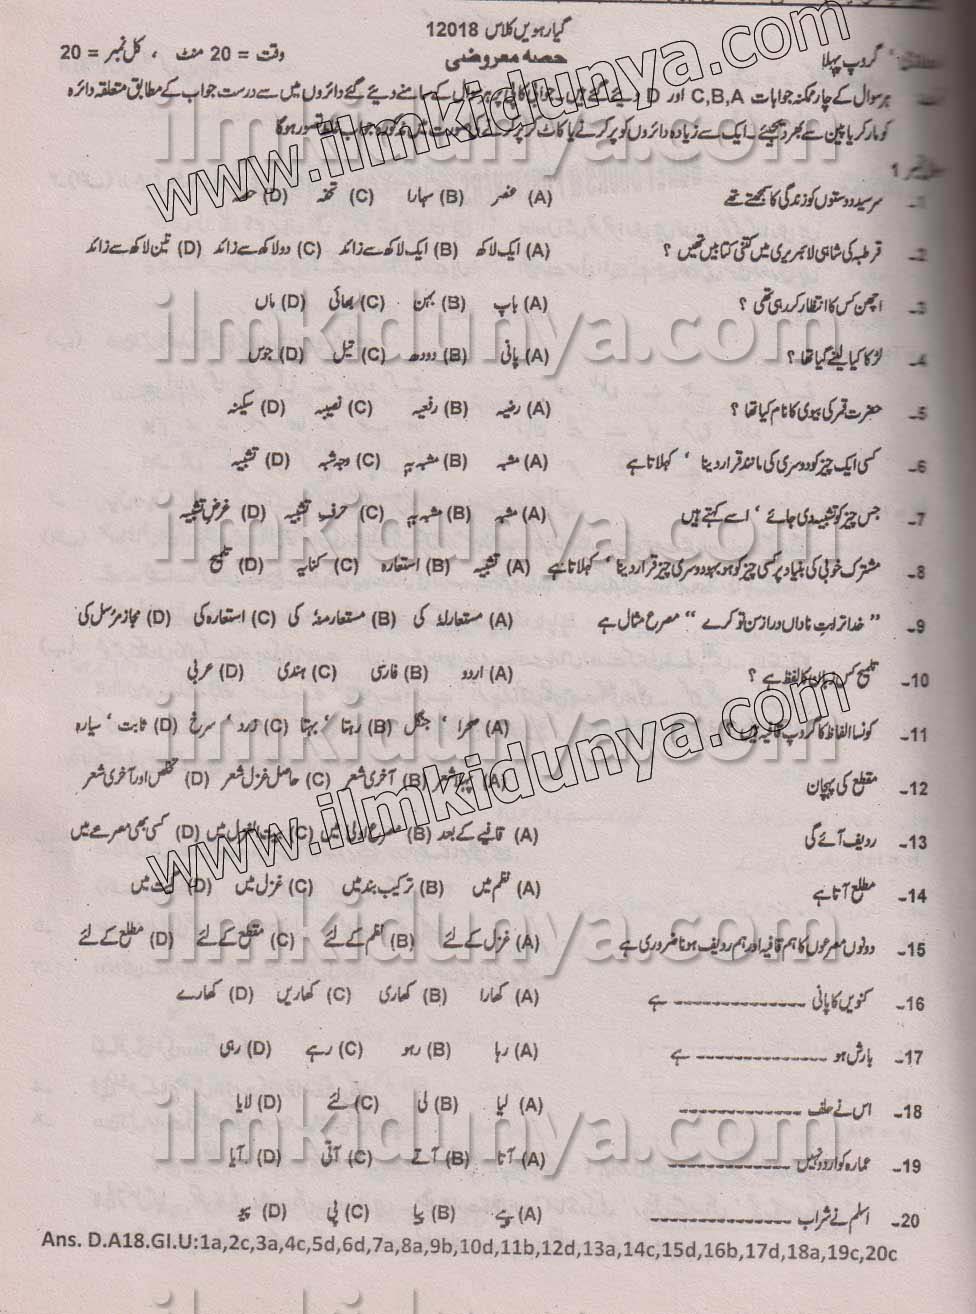 گیارہویں کلاس 12018
گروپ پہلا حصہ معروضی وقت = 20 منٹ ، کل نمبر = 20
ہر سوال کے چار ممکنہ جوابات C,B,A اور D دیئے گئے ہیں۔ جوابی کاپی پر ہر سوال کے سامنے دیئے گئے دائروں میں سے درست جواب کے مطابق متعلقہ دائرہ
کو مارکر یا پین سے بھر دیجیئے۔ ایک سے زیادہ دائروں کو پر کرنے یا کاٹ کر پر کرنے کی صورت میں مذکورہ جواب غلط تصور ہوگا
1
سرسید دوستوں کو زندگی کا سمجھتے تھے (A) عنصر (B) سہارا (C) تحفہ (D) حصہ
2۔ قرطبہ کی شاہی لائبریری میں کتنی کتابیں تھیں ؟ (A) ایک لاکھ (B) ایک لاکھ سے زائد (C) دو لاکھ سے زائد (D) تین لاکھ سے زائد
3۔ اچھن کس کا انتظار کر رہی تھی ؟ (A) باپ (B) بہن (C) بھائی (D) ماں
4۔ لڑکا کیا لینے گیا تھا ؟ (A) پانی (B) دودھ (C) تیل (D) جوس
5۔ حضرت قمر کی بیوی کا نام کیا تھا ؟ (A) رضیہ (B) رفعیہ (C) نصیبہ (D) سکینہ
6۔ کسی ایک چیز کو دوسری کی مانند قرار دینا ' کہلاتا ہے (A) مشبہ (B) مشبہ بہ (C) وجہ شبہ (D) تشبیہ
7۔ جس چیز کو تشبیہ دی جائے ' اسے کہتے ہیں (A) مشبہ (B) مشبہ بہ (C) حرفِ تشبیہ (D) غرضِ تشبیہ
8۔ مشترک خوبی کی بنیاد پر کسی چیز کو ہو بہو دوسری چیز قرار دینا ' کہلاتا ہے (A) تشبیہ (B) استعارہ (C) کنایہ (D) تلمیح
9۔ " خدا تراہتِ ناداں دراز سن تو کرے " مصرع مثال ہے (A) مستعارلہٗ کی (B) مستعارمنہٗ کی (C) استعارہ کی (D) مجاز مرسل کی
10۔ تلمیح کس زبان کا لفظ ہے ؟ (A) اردو (B) فارسی (C) ہندی (D) عربی
11۔ کونسا الفاظ کا گروپ قافیہ ہیں ؟ (A) صحرا ' جنگل (B) رہتا ' بہتا (C) زرد ' سرخ (D) ثابت ' سیارہ
12۔ مقطع کی پہچان (A) پہلا شعر (B) آخری شعر (C) حاصل غزل شعر (D) تخلص اور آخری شعر
13۔ ردیف آئے گی (A) قافیے کے بعد (B) مصرع اولیٰ میں (C) بیت الغزل میں (D) کسی بھی مصرعے میں
14۔ مطلع آتا ہے (A) نظم میں (B) ترکیب بند میں (C) غزل میں (D) گیت میں
15۔ دونوں مصرعوں کا ہم قافیہ اور ہم ردیف ہونا ضروری ہے (A) غزل کے لئے (B) نظم کے لئے (C) مقطع کے لئے (D) مطلع کے لئے
16۔ کنویں کا پانی ------------- ہے (A) کھارا (B) کھاری (C) کھاریں (D) کھارے
17۔ بارش ہو ------------- ہے (A) رہا (B) رہو (C) رہے (D) رہی
18۔ اس نے حلف ------------- (A) لیا (B) لی (C) لئے (D) لایا
19۔ عمارہ کو اردو نہیں ------------- (A) آتا (B) آتے (C) آتی (D) آیا
20۔ اسلم نے شراب ------------- (A) پیے (B) پیا (C) پی (D) پیو
Ans. D.A18.GI.U:1a,2c,3a,4c,5d,6d,7a,8a,9b,10d,11b,12d,13a,14c,15d,16b,17d,18a,19c,20c
www.ilmkidunya.com
www.ilmkidunya.com
ilmkidunya.com
ilmkidunya.com
ilmkidunya.com
ilmkidunya.com
ilmkidunya.com
ilmkidunya.com
ilmkidunya.com